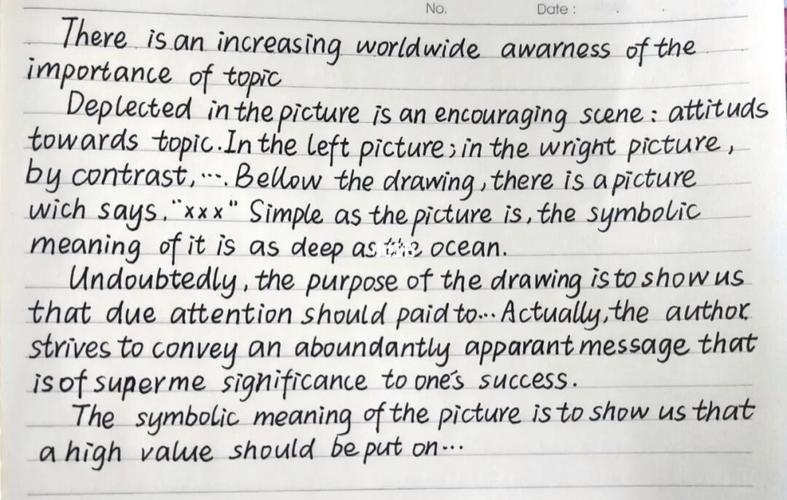 No. Date :
There is an increasing worldwide awarness of the
importance of topic
Deplected in the picture is an encouraging scene : attituds
towards topic. In the left picture ; in the wright picture ,
by contrast, .... Bellow the drawing, there is a picture
wich says, "xxx" Simple as the picture is, the symbolic
meaning of it is as deep as the ocean.
Undoubtedly, the purpose of the drawing is to show us
that due attention should paid to... Actually, the author
strives to convey an aboundantly apparant message that
is of superme significance to one's success.
The symbolic meaning of the picture is to show us that
a high value should be put on...